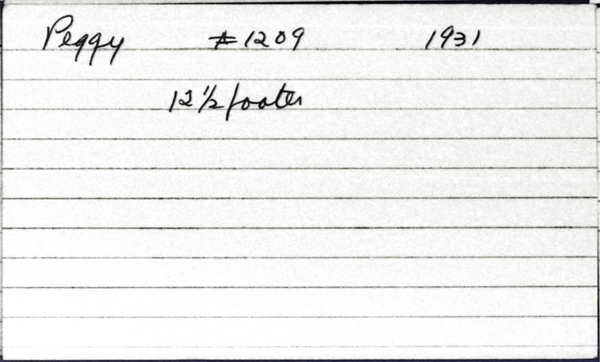 Peggy #1209 1931
12 1/2 footer